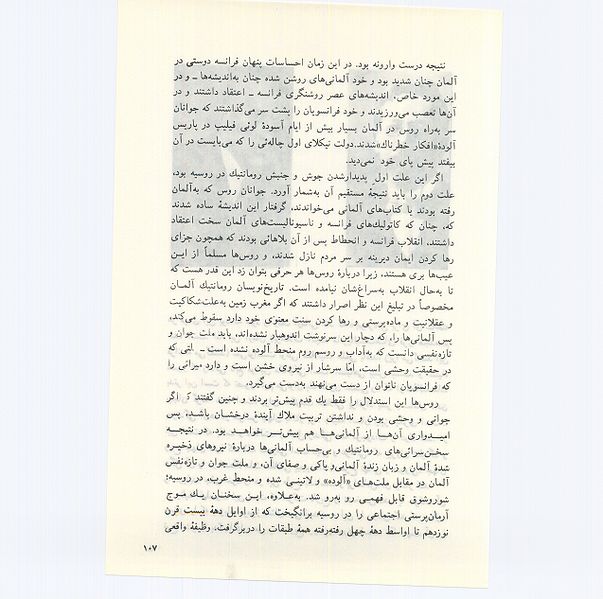 نتیجه درست وارونه بود. در این زمان احساسات پنهان فرانسه دوستی در
آلمان چنان شدید بود و خود آلمانی‌های روشن شده چنان به‌اندیشه‌ها ــ و در
این مورد خاص، اندیشه‌های عصر روشنگری فرانسه ــ اعتقاد داشتند و در
آن‌ها تعصب می‌ورزیدند و خود فرانسویان را پشت سر می‌گذاشتند که جوانان
سر به‌راه روس در آلمان بسیار بیش از ایام آسودهٔ لوئی فیلیپ در پاریس
آلودهٔ «افکار خطرناك» شدند. دولت نیکلای اول چاله‌ئی را که می‌بایست در آن
بیفتد پیش پای خود نمی‌دید.
اگر این علت اول پدیدارشدن جوش و جنبش رومانتیك در روسیه بود،
علت دوم را باید نتیجهٔ مستقیم آن به‌شمار آورد. جوانان روس که به‌آلمان
رفته بودند یا کتاب‌های آلمانی می‌خواندند، گرفتار این اندیشهٔ ساده شدند
که، چنان که کاتولیك‌های فرانسه و ناسیونالیست‌های آلمان سخت اعتقاد
داشتند، انقلاب فرانسه و انحطاط پس از آن بلاهائی بودند که همچون جزای
رها کردن ایمان دیرینه بر سر مردم نازل شدند، و روس‌ها مسلماً از این
عیب‌ها بری هستند، زیرا دربارهٔ روس‌ها هر حرفی بتوان زد این قدر هست که
تا به‌حال انقلاب به‌سراغ‌شان نیامده است. تاریخ‌نویسان رومانتیك آلمان
مخصوصاً در تبلیغ این نظر اصرار داشتند که اگر مغرب زمین به‌علت شکاکیت
و عقلانیت و ماده‌پرستی و رها کردن سنت معنوی خود دارد سقوط می‌کند،
پس آلمانی‌ها را، که دچار این سرنوشت اندوهبار نشده‌اند، باید ملت جوان و
تازه‌نفسی دانست که به‌آداب و رسوم روم منحط آلوده نشده است ــ ملتی که
در حقیقت وحشی است، امّا سرشار از نیروی خشن است و دارد میراثی را
که فرانسویان ناتوان از دست می‌نهند به‌دست می‌گیرد.
روس‌ها این استدلال را فقط یك قدم پیش‌تر بردند و چنین گفتند که اگر
جوانی و وحشی بودن و نداشتن تربیت ملاك آیندهٔ درخشان باشد، پس
امیدواری آن‌ها از آلمانی‌ها هم بیش‌تر خواهد بود. در نتیجه
سخن‌سرائی‌های رومانتیك و بی‌حساب آلمانی‌ها دربارهٔ نیروهای ذخیره
شدهٔ آلمان و زبان زندهٔ آلمانی و پاکی و صفای آن، و ملت جوان و تازه‌نفس
آلمان در مقابل ملت‌های «آلوده» و لاتینی شده و منحط غرب، در روسیه؛
شوروشوق قابل فهمی رو به‌رو شد. به‌علاوه، این سخنان یك موج
آرمان‌پرستی اجتماعی را در روسیه برانگیخت که از اوایل دههٔ بیست قرن
نوزدهم تا اواسط دههٔ چهل رفته‌رفته همهٔ طبقات را دربرگرفت. وظیفهٔ واقعی
۱۰۷